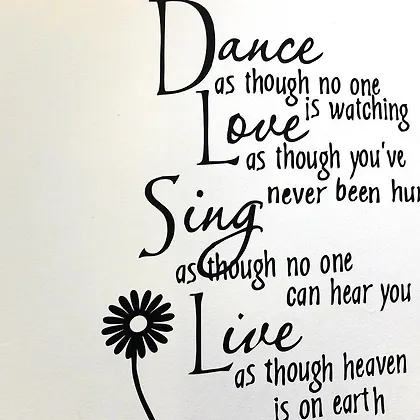 Dance
as though no one
is watching
Love
as though you've
never been hur
Sing
as though no one
can hear you
Live
as though heaven
is on earth